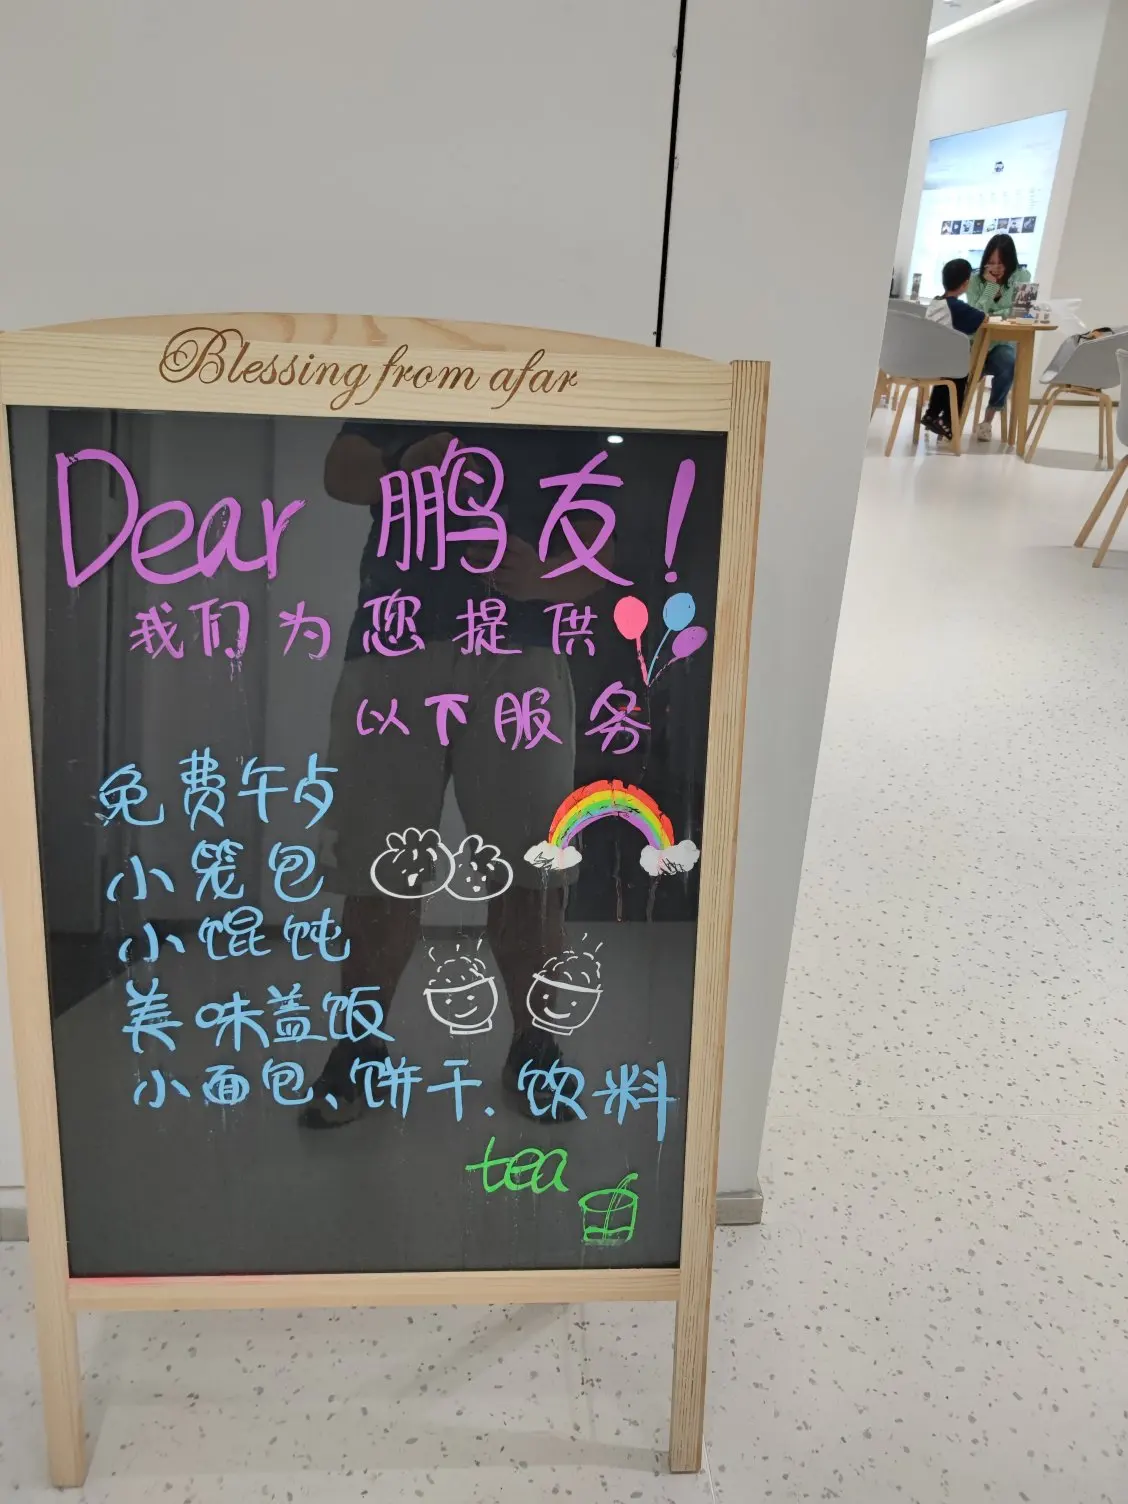 Blessing from afar
Dear 鹏友!
我们为您提供
以下服务
免费午歺
小笼包
小馄饨
美味盖饭
小面包、饼干、饮料
tea